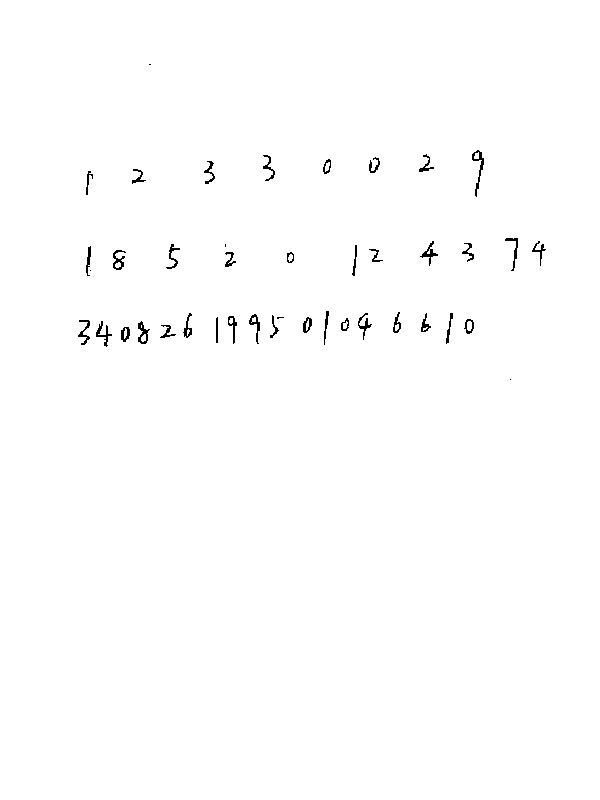 1 2 3 3 0 0 2 9
1 8 5 2 0 1 2 4 3 7 4
340826199501046610